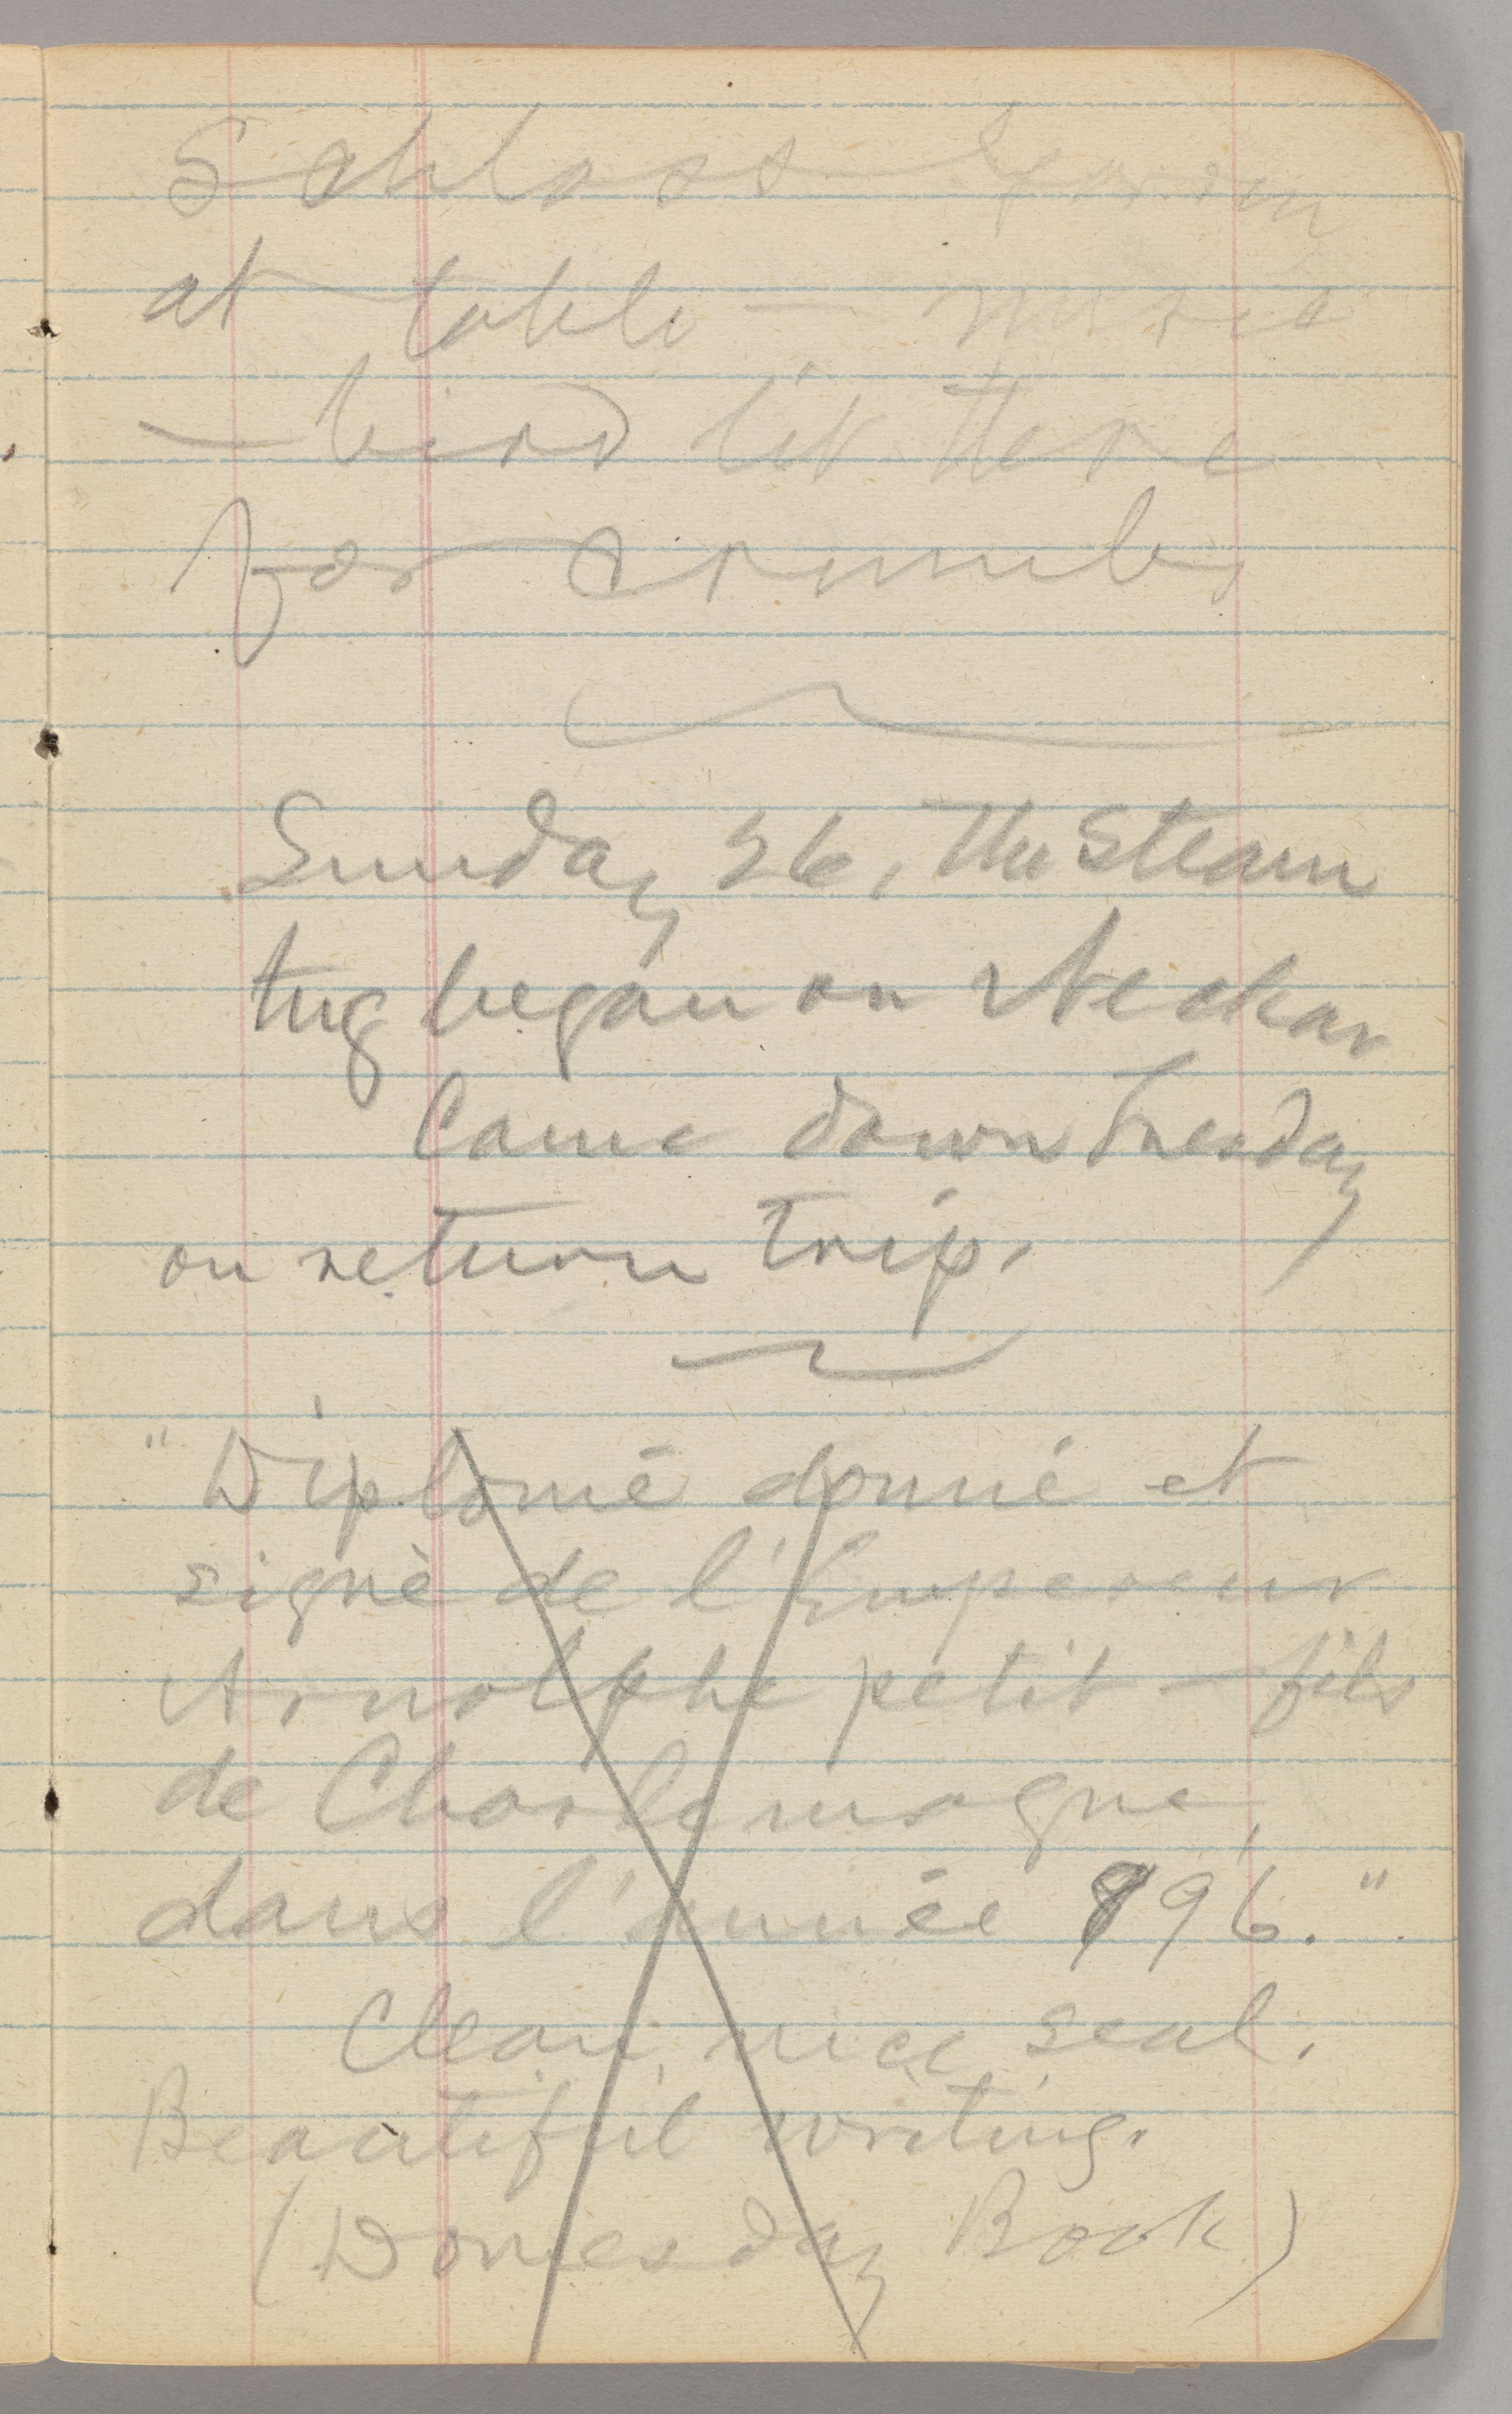 Schloss Garden
at table — music
— bird lit there
for crumbs
Sunday 26, the steam
tug began on Neckar
Came down Tuesday
on return trip.
"Diplomé donné et
signè de l'Empereur
Arnolphe petit-fils
de Charlemagne,
dans l'année 896."
Clean, nice seal.
Beautiful writing.
(Domesday Book)